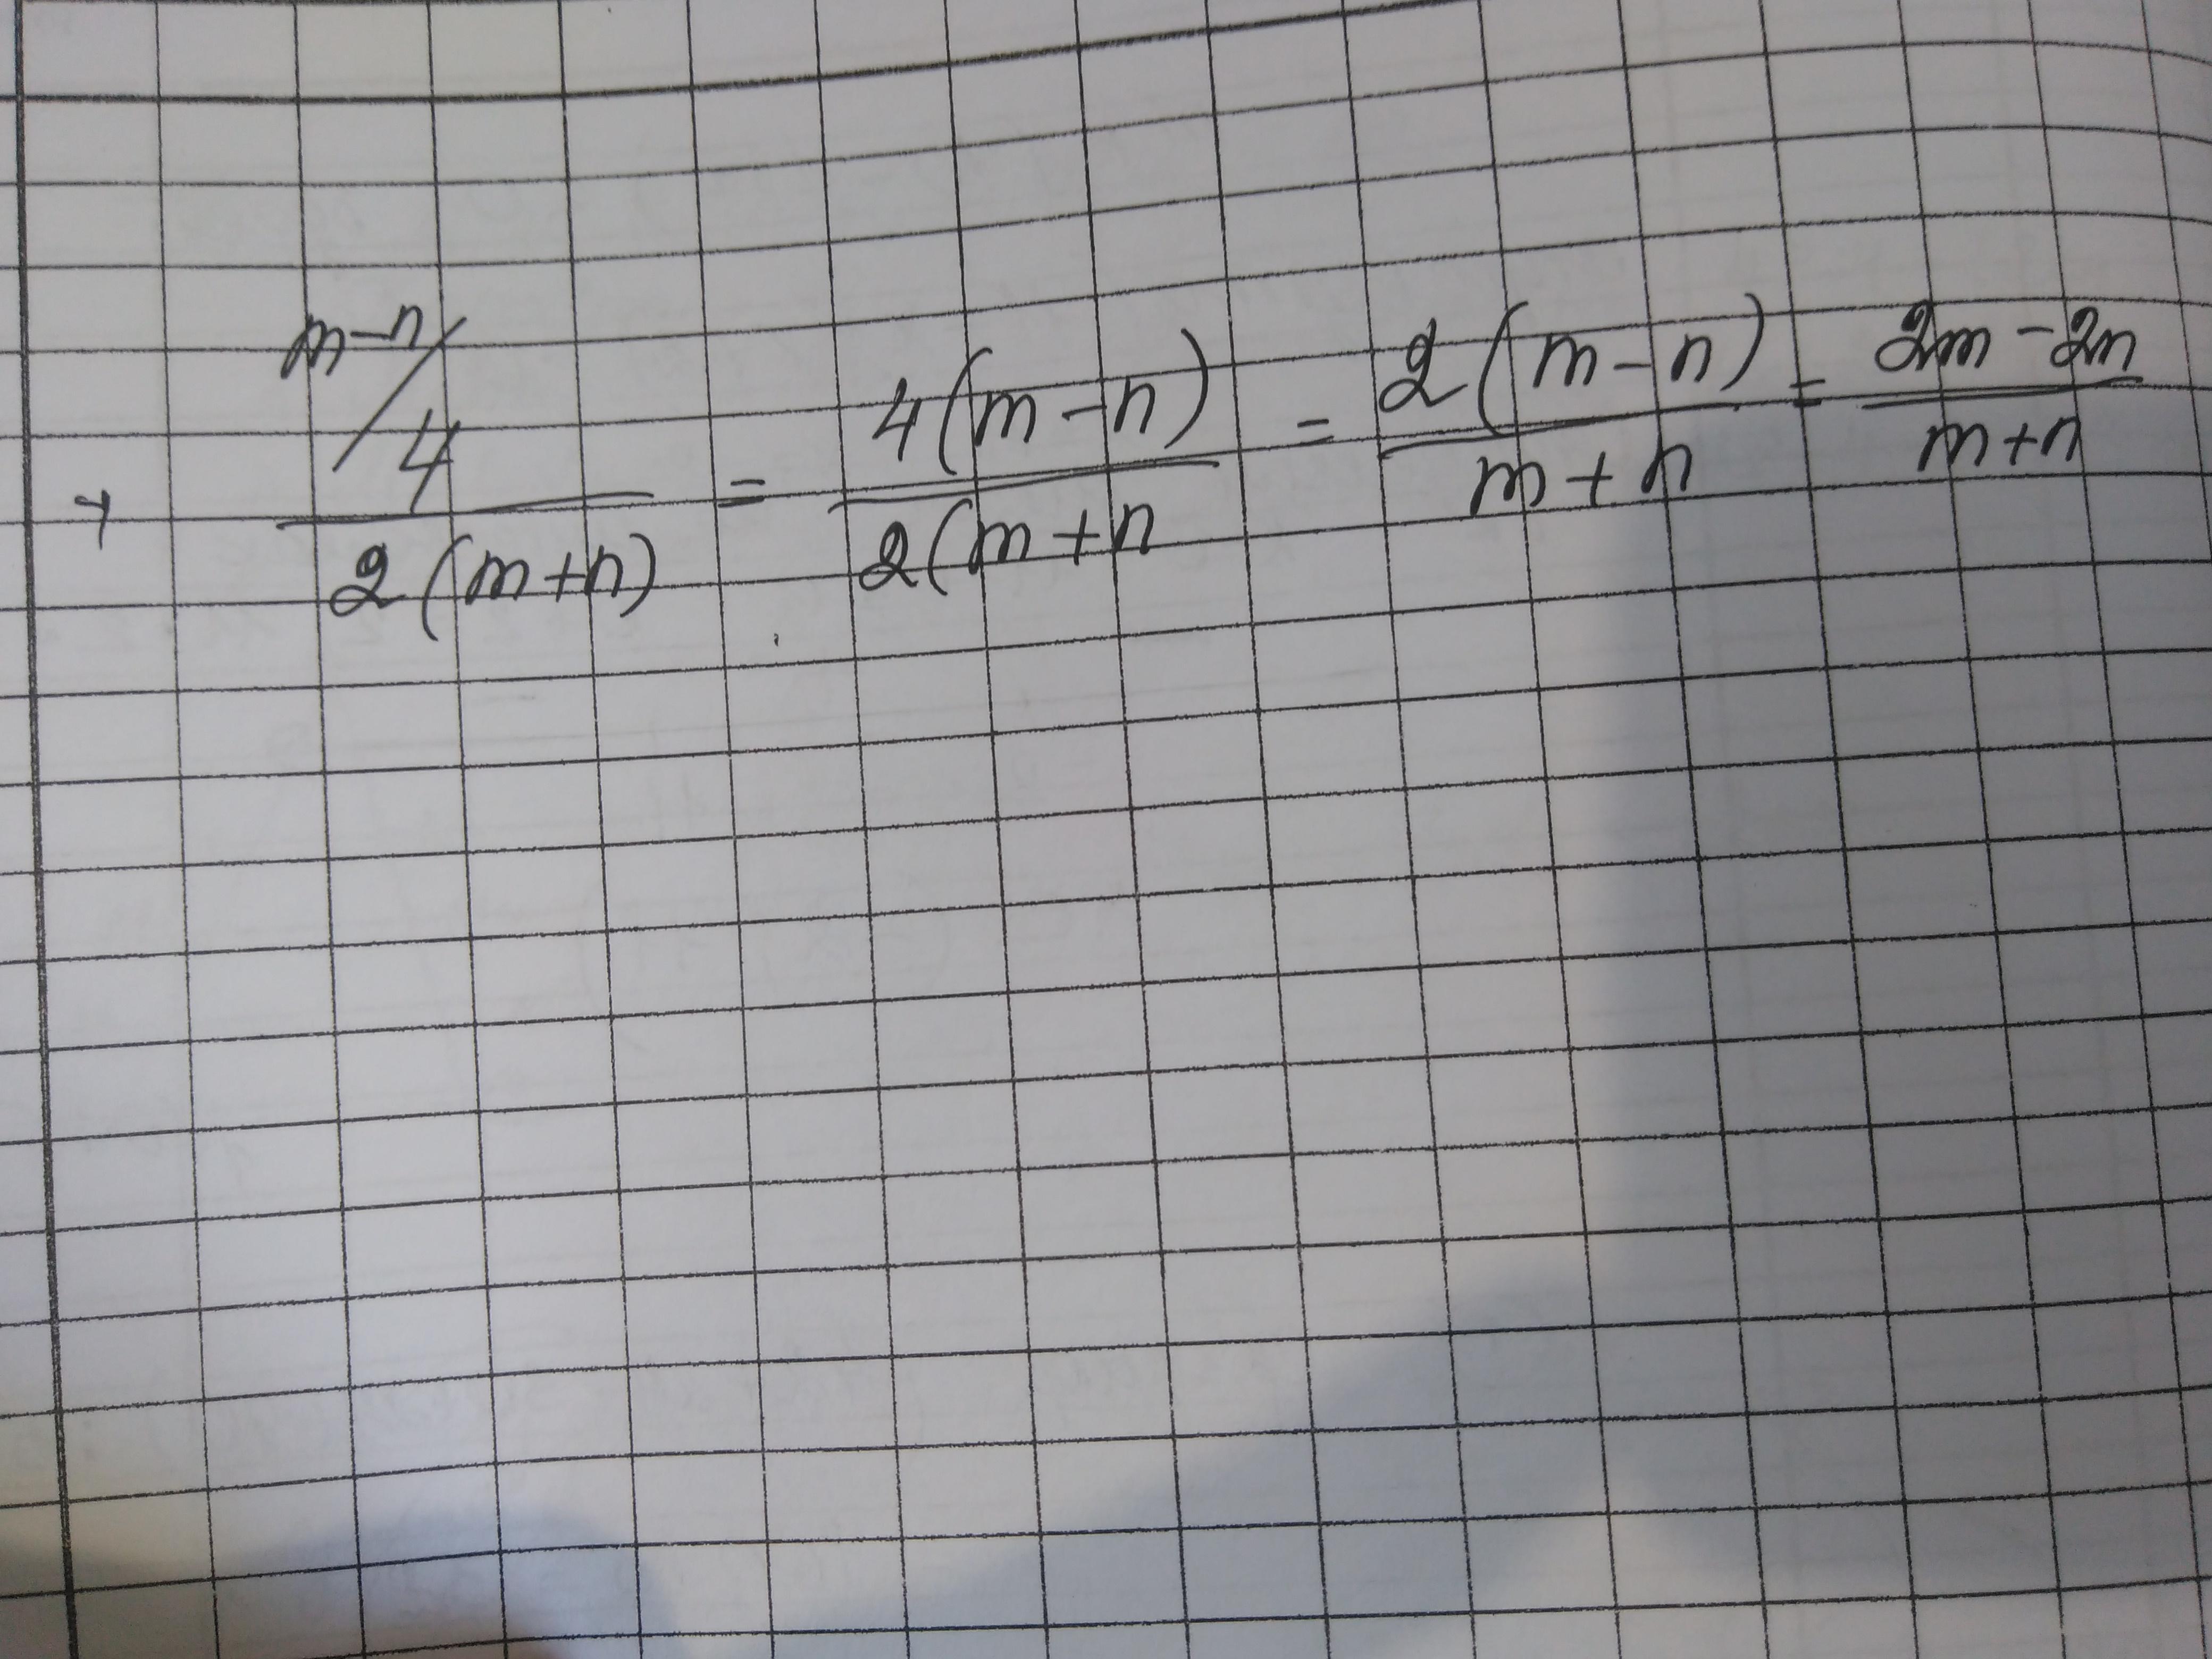 + m-n/4 / 2(m+n) = 4(m-n) / 2(m+n = 2(m-n) / m+n = 2m-2n / m+n